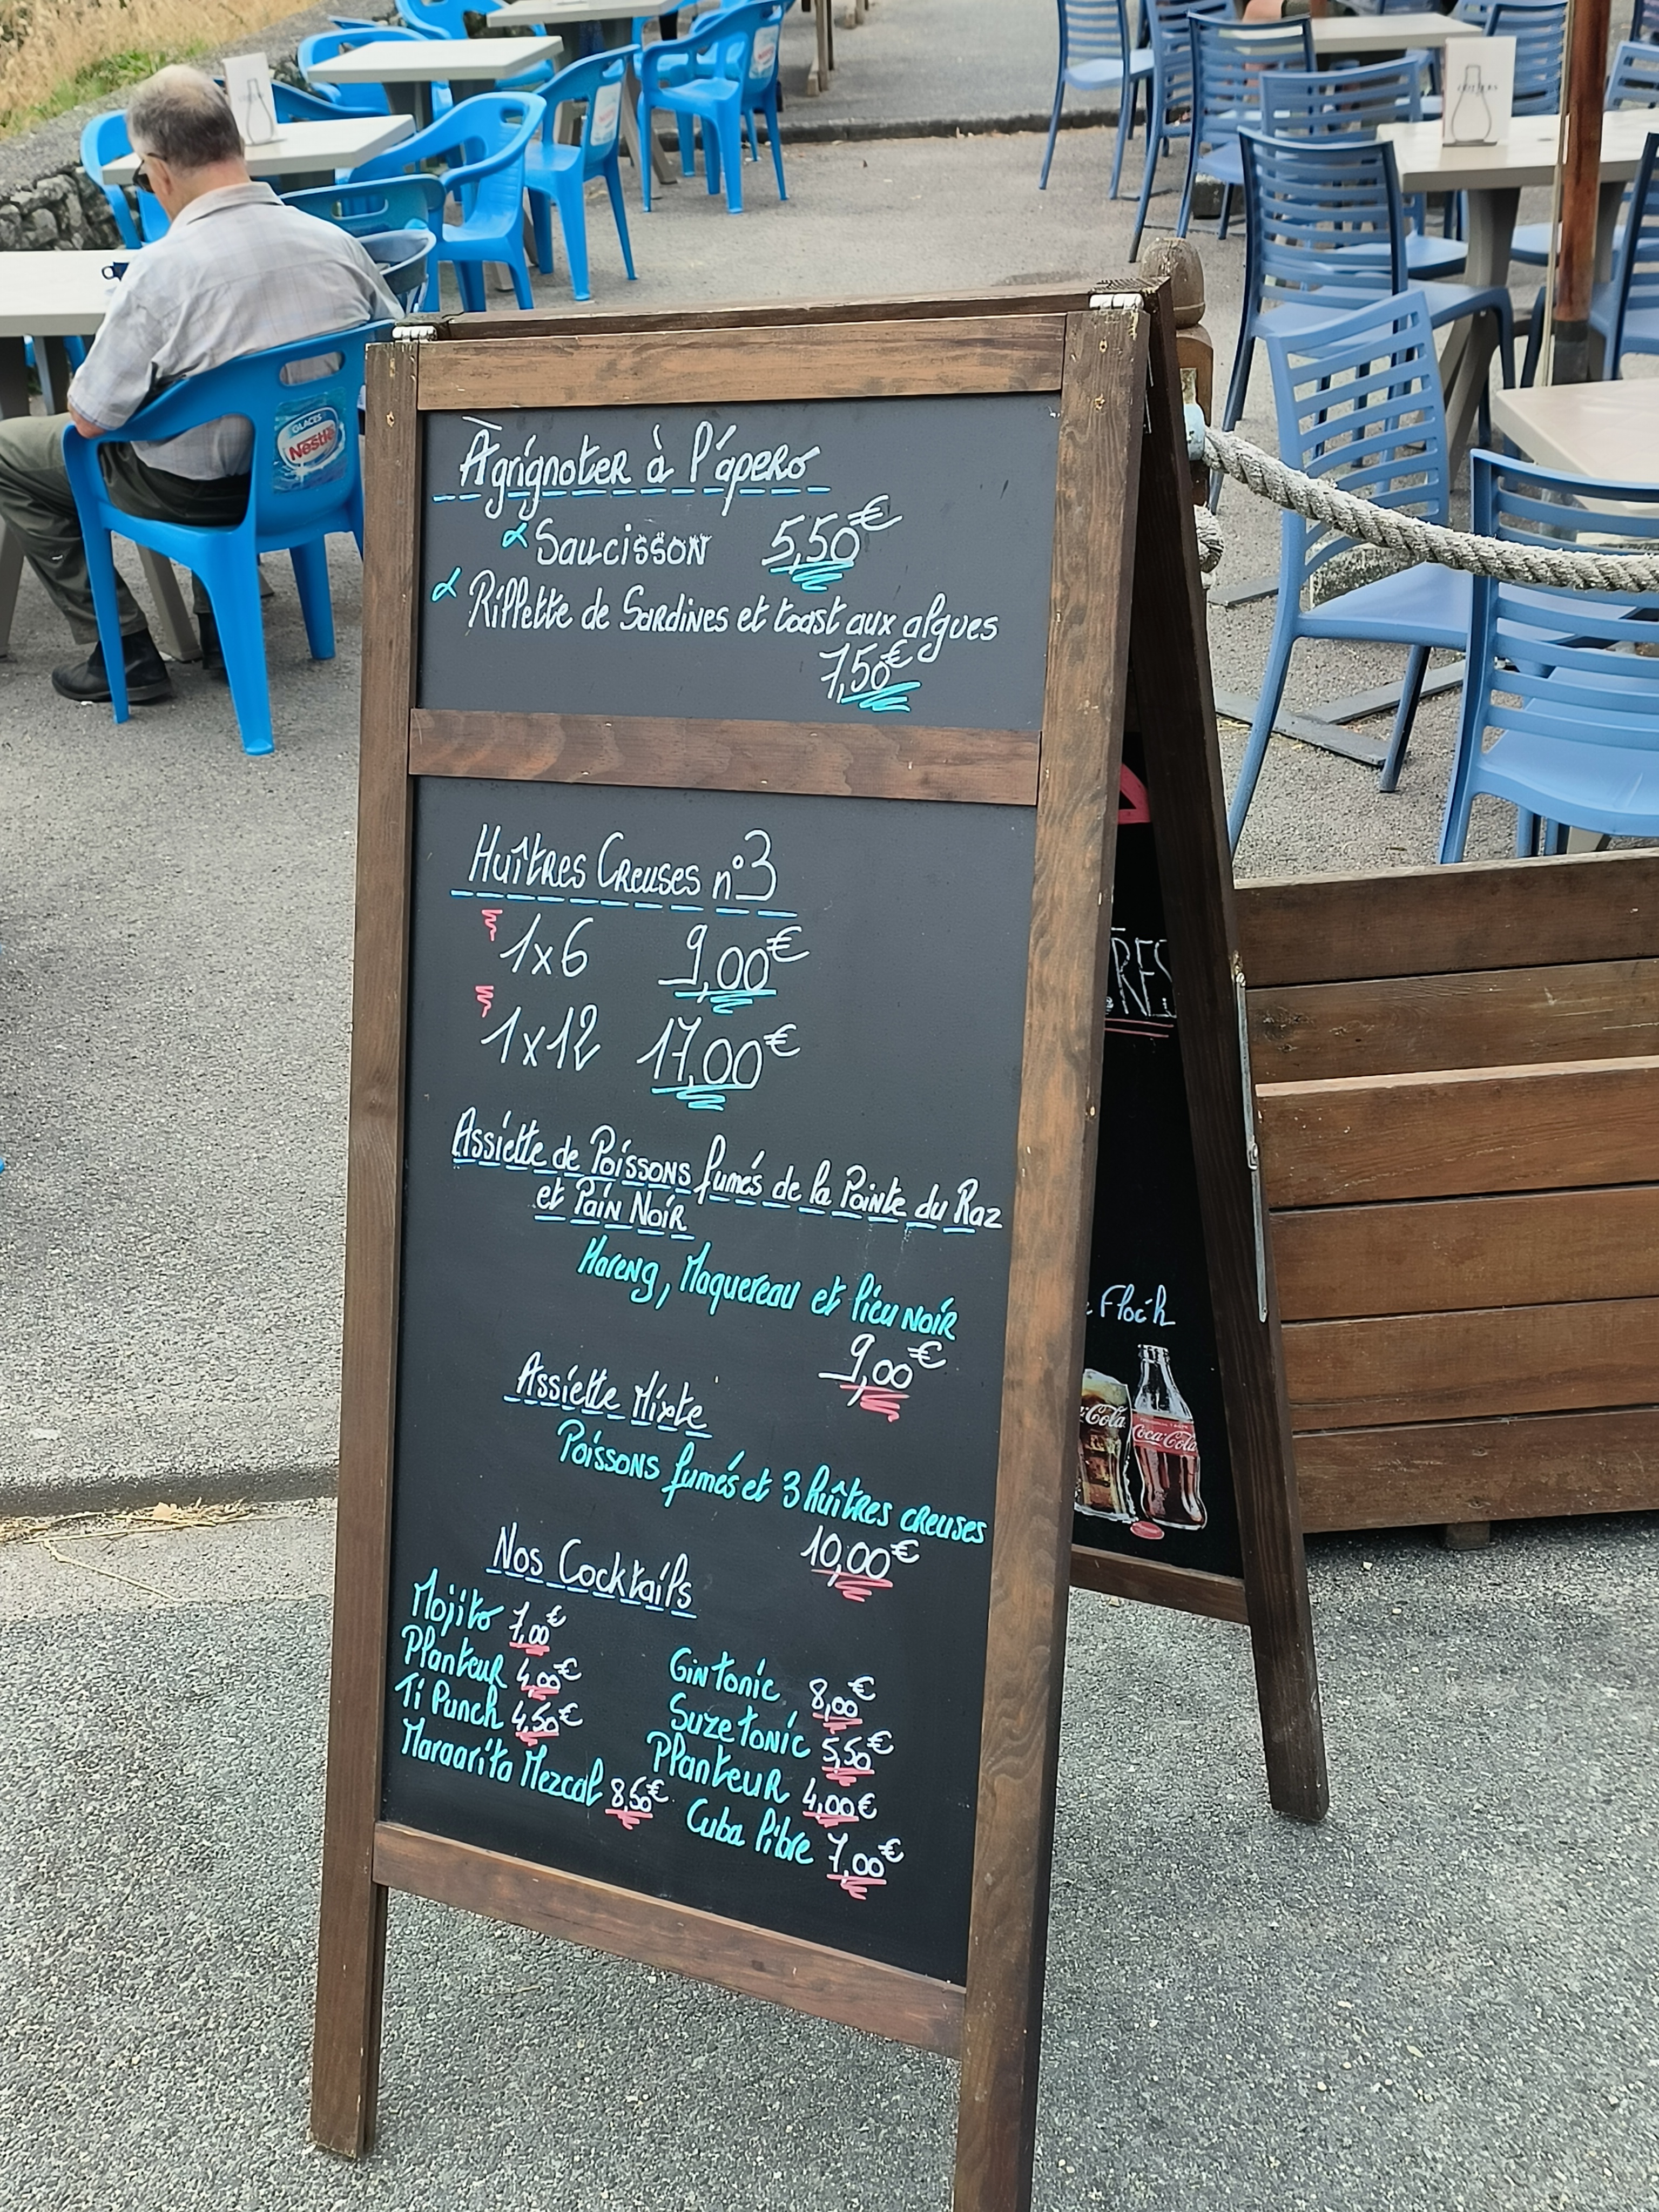 À grignoter à l'apero
Saucisson 5,50€
Rillette de Sardines et toast aux algues
7,50€
Huîtres Creuses n°3
1x6 9,00€
1x12 17,00€
Assiette de Poissons fumés de la Pointe du Raz
et Pain Noir
Hareng, Maquereau et lieu noir
9,00€
Assiette Mixte
Poissons fumés et 3 huîtres creuses
10,00€
Nos Cocktails
Mojito 7,00€
Planteur 4,00€
Ti Punch 4,50€
Margarita Mezcal 8,50€
Gin tonic 8,00€
Suze tonic 5,50€
Planteur 4,00€
Cuba libre 7,00€
RES
Floc'h
Coca-Cola
GLACES
Nestlé